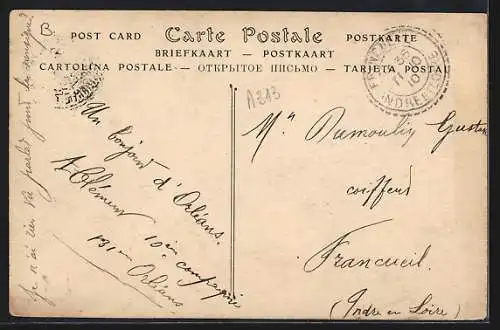 B
POST CARD Carte Postale POSTKARTE
BRIEFKAART — POSTKAART
CARTOLINA POSTALE — ОТКРЫТОЕ ПИСЬМО — TARJETA POSTAL
FRANCUEIL
INDRE ET
A213
Un bonjour d'Orléans.
A Clément
131em 10em compagnie
Orléans
Je n'ai rien vu parlé pour les
Mr Dumoulin Gustave
coiffeur
Francueil.
(Indre en Loire)